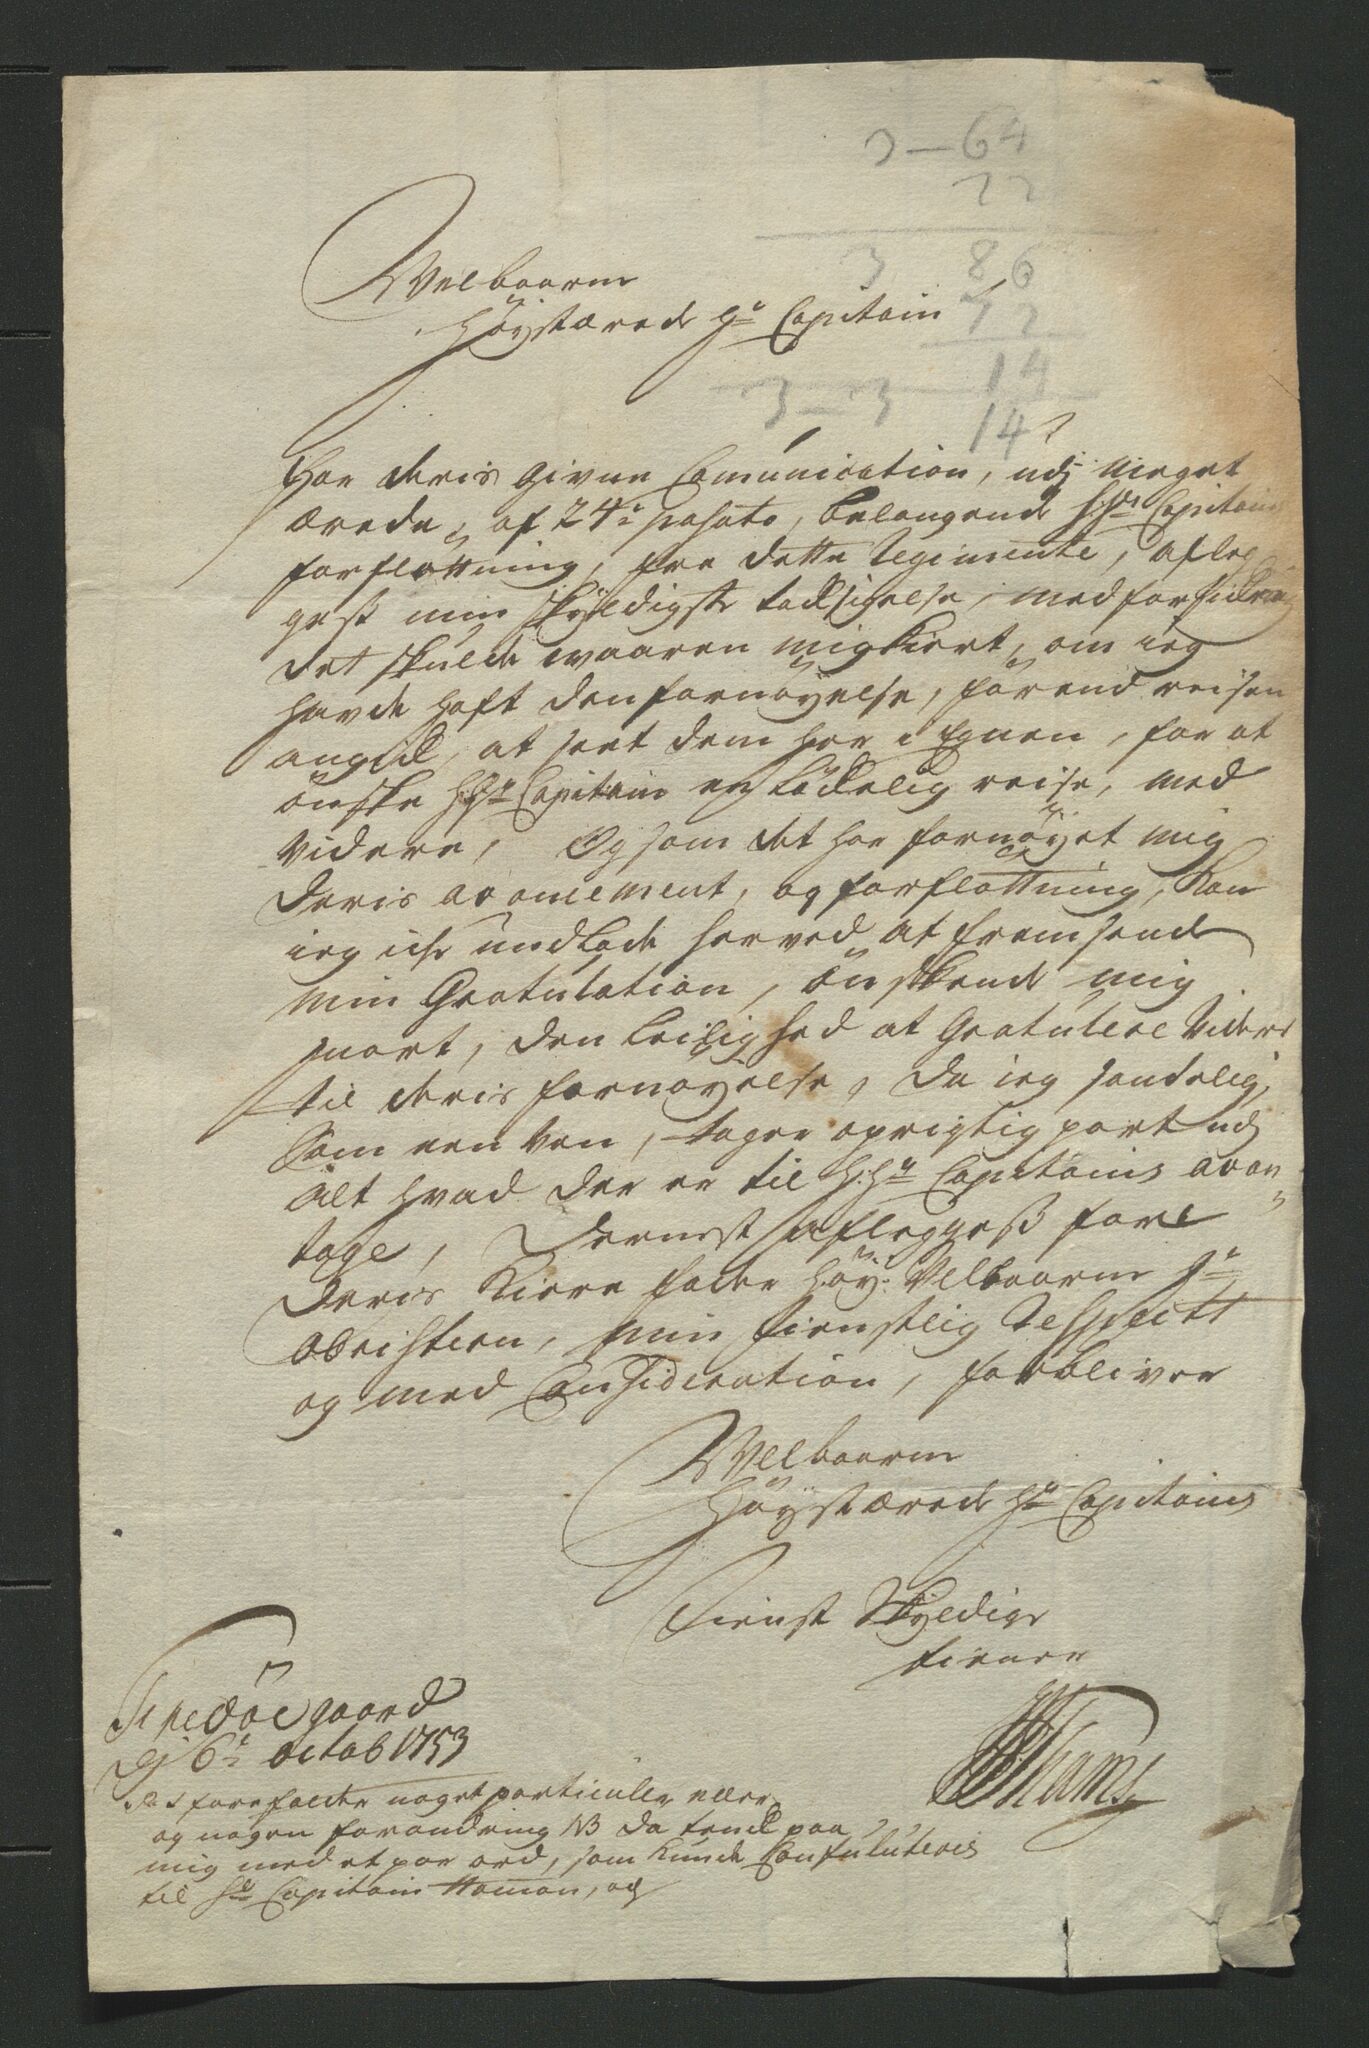 3—64
22
3 86
72
14
3—3 14
Welbaarne
Høystærede Hr Capitain
For deris givne Comunication, udj meget
ærede, af 24de pasato, belangende H:Hr Capitains
forflottning, fra dette Regimente, afleg
gest min skyldigste taksigelse, med forsikring
det skulde waaren mig kiert, om ieg
hafde haft den fornøyelse, førend reisen
angik, at seet dem her i Egnen, for at
ønske H:Hr Capitain en løkelig reise, med
videre, Og som det har fornøyet mig
deris avancement, og forflottning, kan
ieg icke undlade herved at fremsende
min Gratulation, ønskende mig
snart, den leilighed at Gratulere videre
til deris fornøyelse, da ieg sandelig,
som een ven, tager oprigtig part udj
alt hvad der er til H:Hr Capitains avan
tage, dernest aflegges for
deris kiere fader Høy: Velbaarne Hr
Obristen, min tienstlig Respectt
og med Consideration, forbliver
Welbaarne
Høystærede Hr Capitains
Tienst skyldige
tiener
gaard
dj 6te octob 1753
forefalder noget particulier eller
og nogen forandring NB da tenk paa
mig med et par ord, som kunde
til Hr Capitain Haman, och
Thams